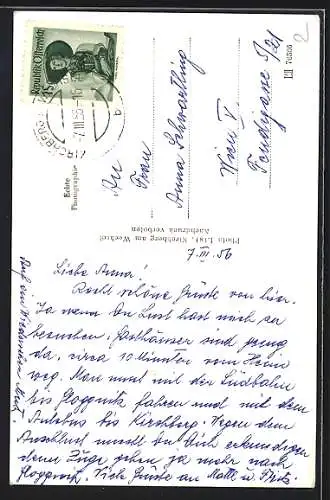 Republik Österreich
KIRCHBERG
-7.III.56-
An
Frau
Anna Schwartling
Wien V.
Echte
Photographie
Photo List, Kirchberg am Wechsel
Nachdruck verboten
70566
2
7.III.56
Liebe Anna.
Recht schöne Grüße von hier.
Ja wenn Du Lust hast mich zu
besuchen: Gasthäuser sind genug
da, circa 10 Minuten vom Heim
weg. Man muß mit der Südbahn
bis Gloggnitz fahren und mit dem
Autobus bis Kirchberg. Wegen dem
Anschluß mußt Du Dich erkundigen
denn Züge gehen ja mehr nach
Gloggnitz. Viele Grüße an u. Fritz.
Auf ein Wiedersehen